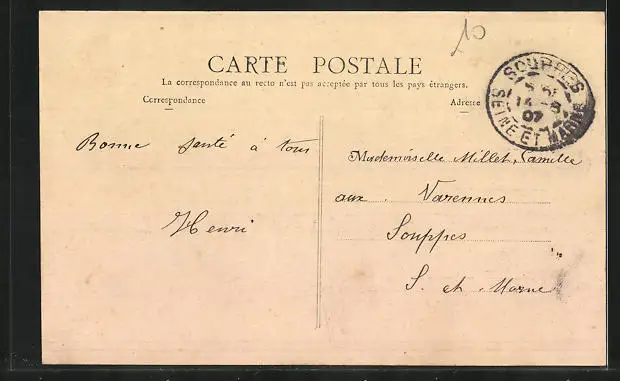 10
CARTE POSTALE
La correspondance au recto n'est pas acceptée par tous les pays étrangers.
Correspondance
Adresse
SOUPPES
14 -8
07
SEINE ET MARNE
Bonne santé à tous
Henri
Mademoiselle Millet, Camille
aux Varennes
Souppes
S. et Marne